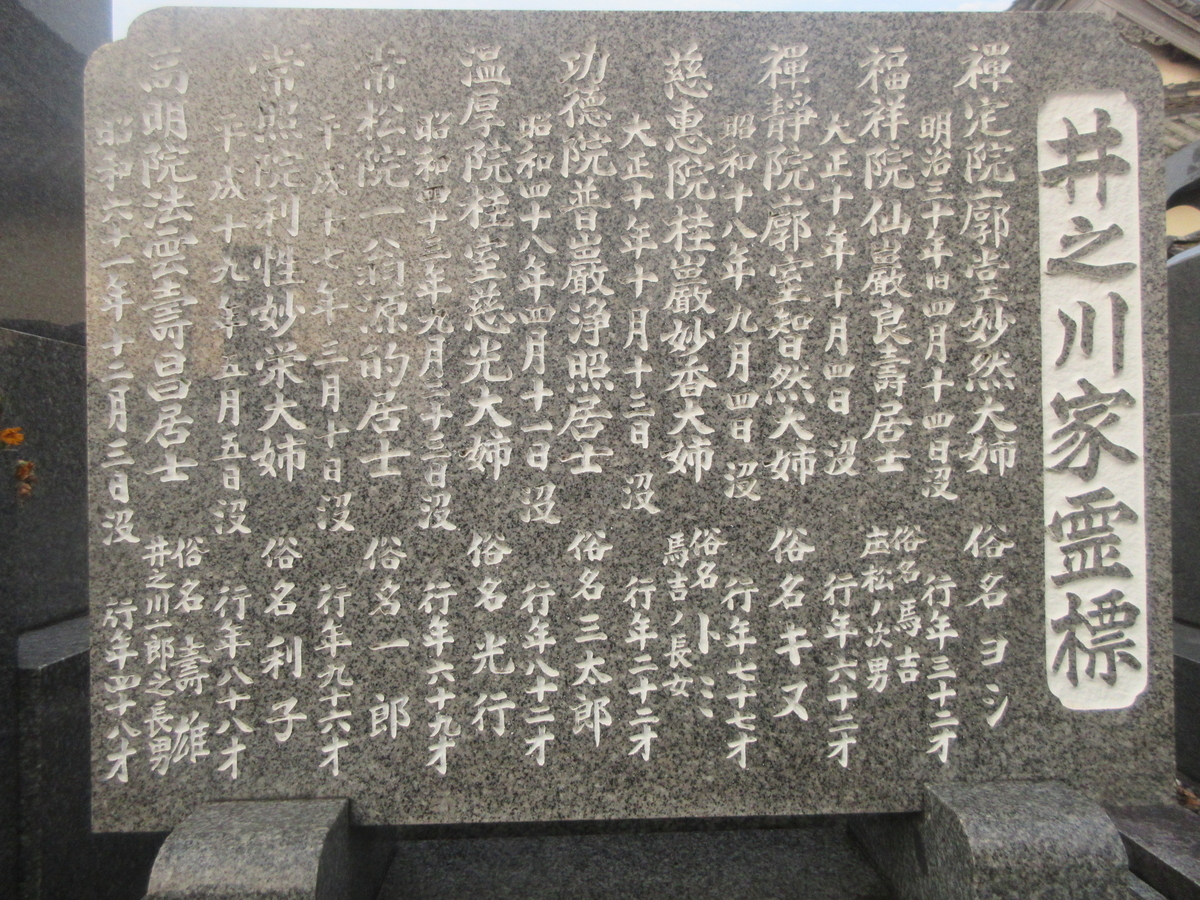 井之川家霊標
禪定院廓室妙然大姉 俗名ヨシ
明治三十年旧四月十四日没 行年三十二才
福祥院仙巖良壽居士 俗名馬吉
庄松ノ次男
大正十年十月四日 没 行年六十二才
禪靜院廓室智然大姉 俗名キヌ
昭和十八年九月四日 没 行年七十七才
慈恵院桂巖妙香大姉 俗名トミ
馬吉ノ長女
大正十年十月十三日 没 行年二十二才
功徳院普巖浄照居士 俗名三太郎
昭和四十八年四月十一日 没 行年八十二才
温厚院桂室慈光大姉 俗名光行
昭和四十三年九月二十三日没 行年六十九才
常松院一公翁源的居士 俗名一郎
平成十七年三月十日 没 行年九十六才
常照院利性妙栄大姉 俗名利子
平成十九年五月五日 没 行年八十八才
高明院法雲壽昌居士 俗名壽雄
井之川一郎之長男
昭和六十一年十二月三日没 行年四十八才